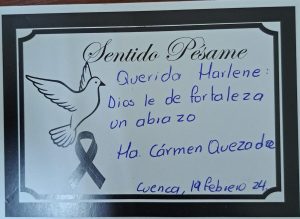 Sentido Pésame
Querida Marlene:
Dios le de fortaleza
un abrazo
Ma. Cármen Quezada
Cuenca, 19 Febrero 24